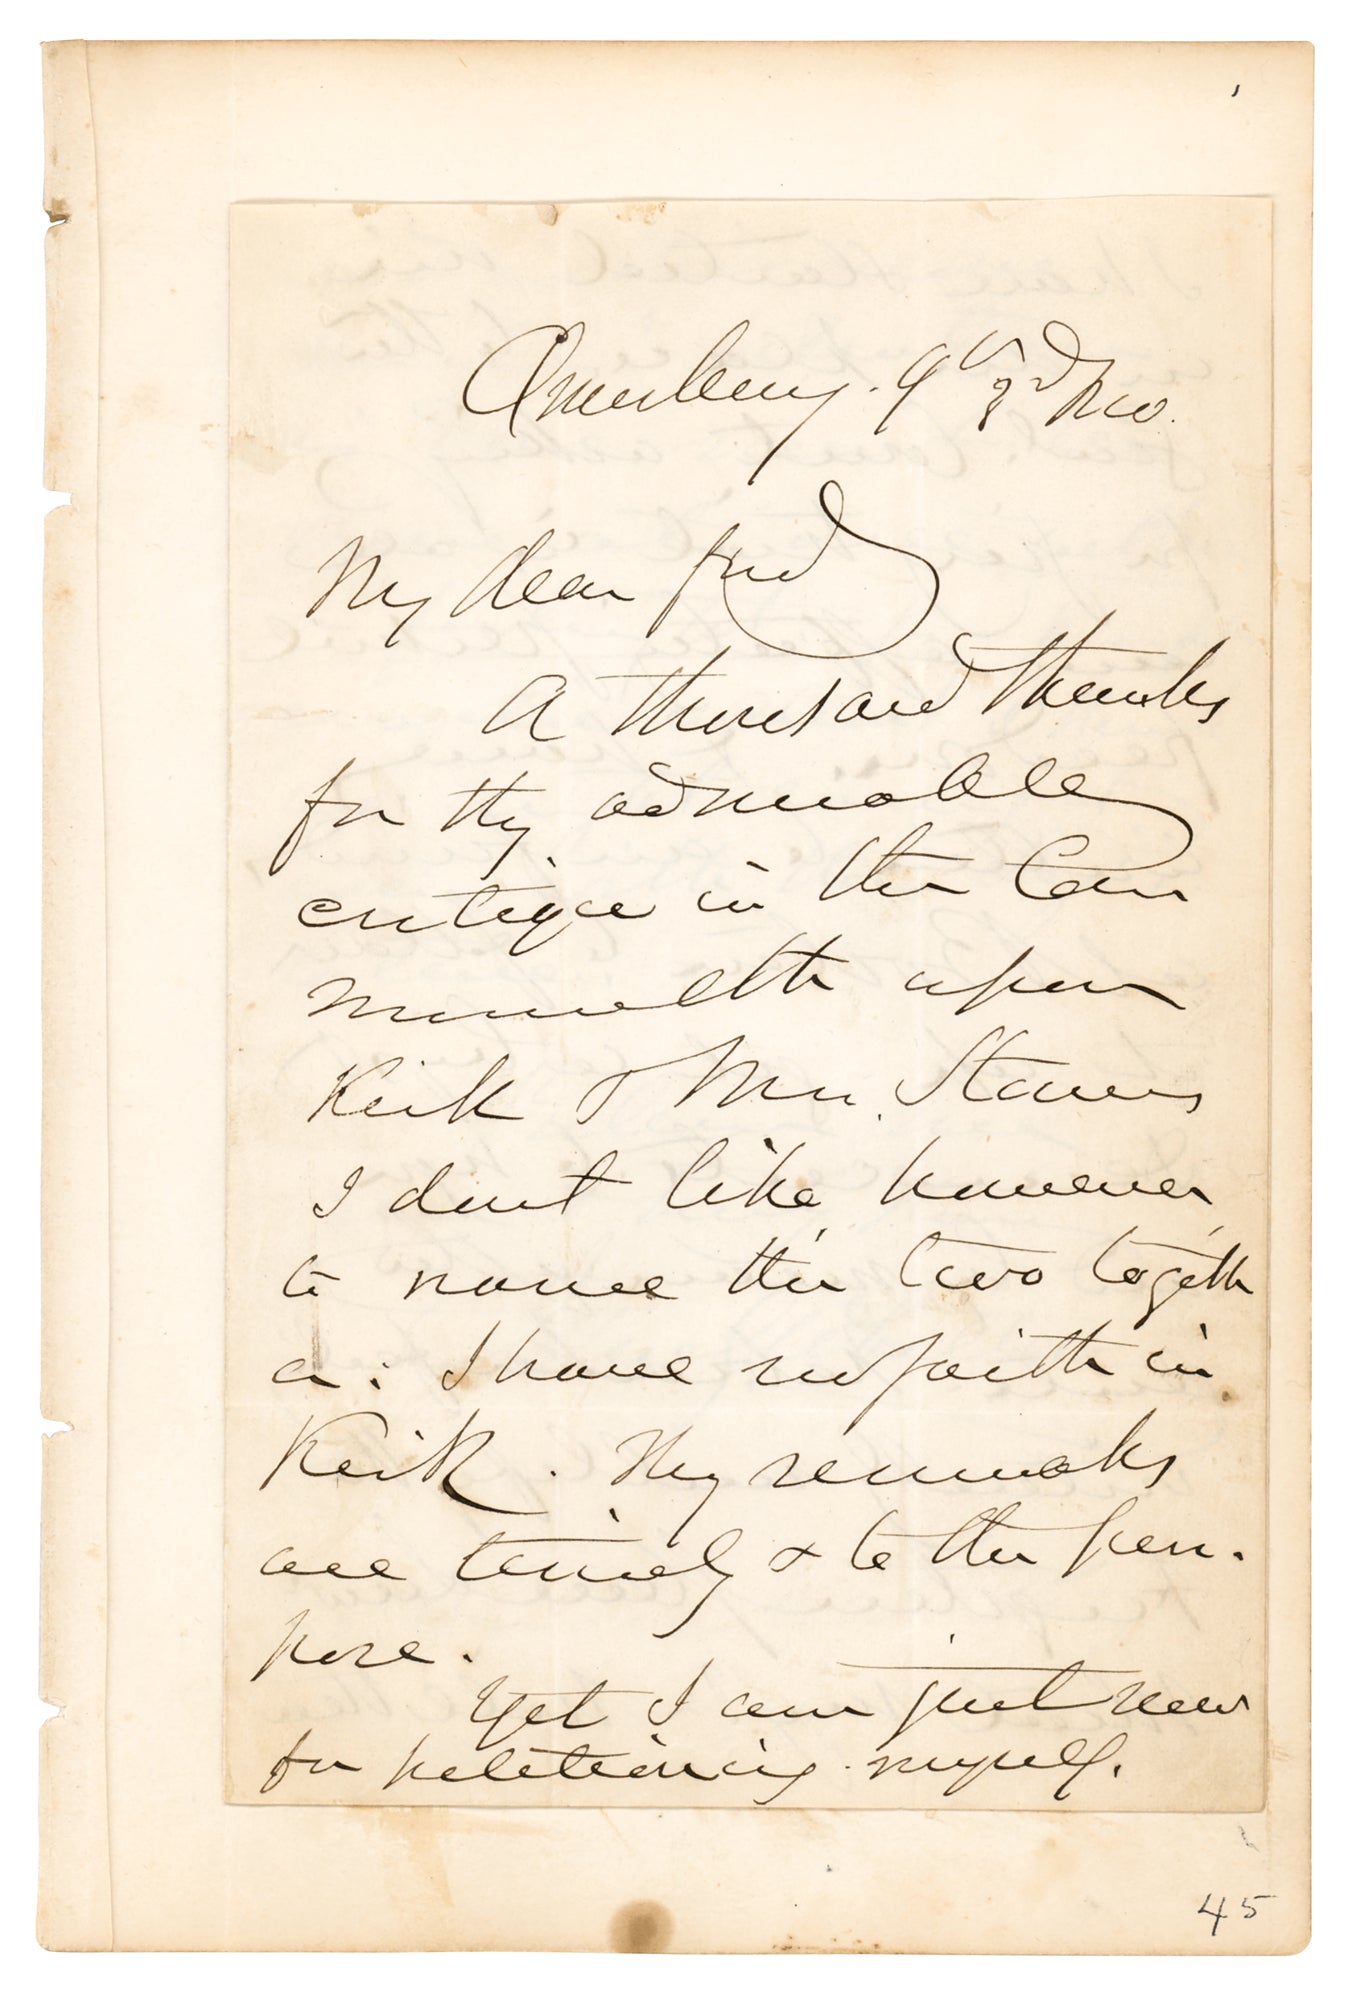 Amesbury. 9th 3rd Mo.
My dear friend
A thousand thanks
for thy admirable
critique in the Com
monwealth upon
Kirk & Mrs. Stowe
I dont like, however,
to name the two togeth
er: I have no faith in
Kirk. Thy remarks
are timely & to the pur-
pose.
Yet I am just now
for petitioning myself.
45